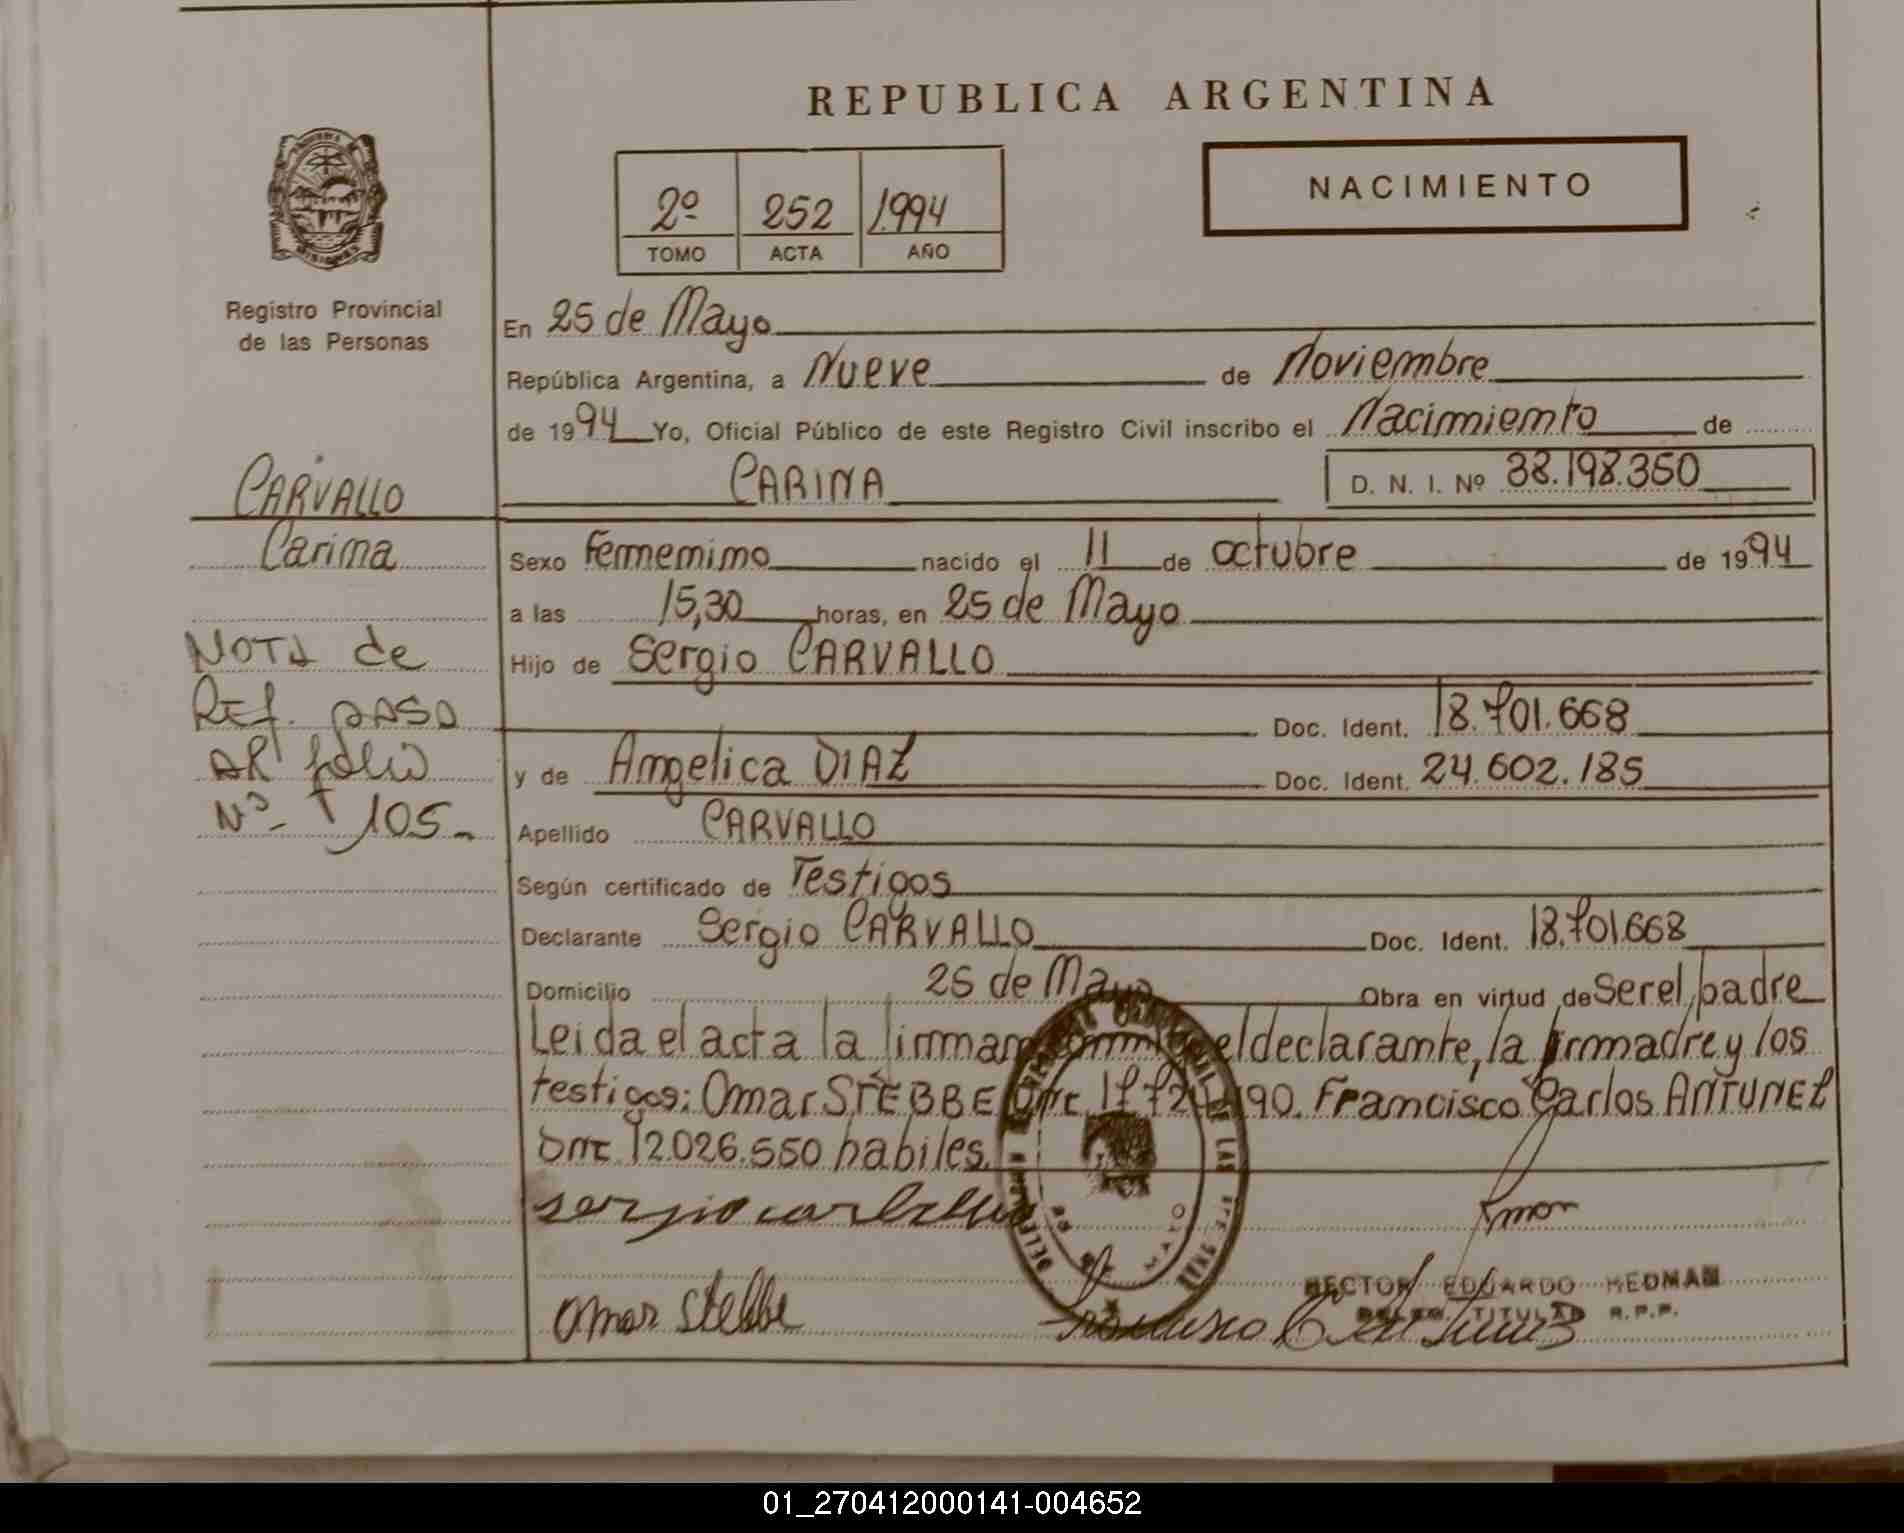 REPUBLICA ARGENTINA
NACIMIENTO
2º 252 1.994
TOMO ACTA AÑO
Registro Provincial
de las Personas
En 25 de Mayo
República Argentina, a Nueve de Noviembre
de 1994 Yo, Oficial Público de este Registro Civil inscribo el Nacimiento de
CARINA D. N. I. Nº 38.198.350
CARVALLO
Carina
Sexo Femenino nacido el 11 de octubre de 1994
a las 15,30 horas, en 25 de Mayo
Hijo de Sergio CARVALLO
Doc. Ident. 18.701.668
y de Angelica DIAZ Doc. Ident. 24.602.185
Apellido CARVALLO
NOTA de
REf. PASA
AR folio
Nº 105-
Según certificado de Testigos
Declarante Sergio CARVALLO Doc. Ident. 18.701.668
Domicilio 25 de Mayo Obra en virtud de Ser el padre
Leida el acta la firman el declarante, la madre y los
testigos; Omar STEBBE 190. Francisco Carlos ANTUNEZ
DNI 12.026.550 habiles.
Omar Stebbe
HECTOR EDUARDO HEDMAN
TITULAR R.P.P.
01_270412000141-004652